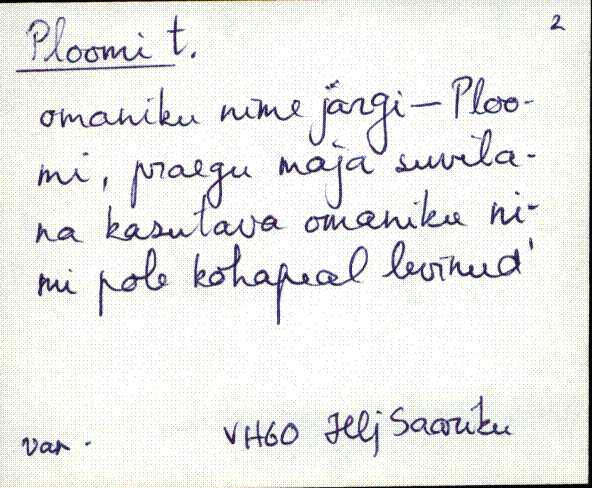 2
Ploomi t.
omaniku nime järgi – Ploo-
mi, praegu maja suvila-
na kasutava omaniku ni-
mi pole kohapeal levinud'
var. VH60 Helj Saariku